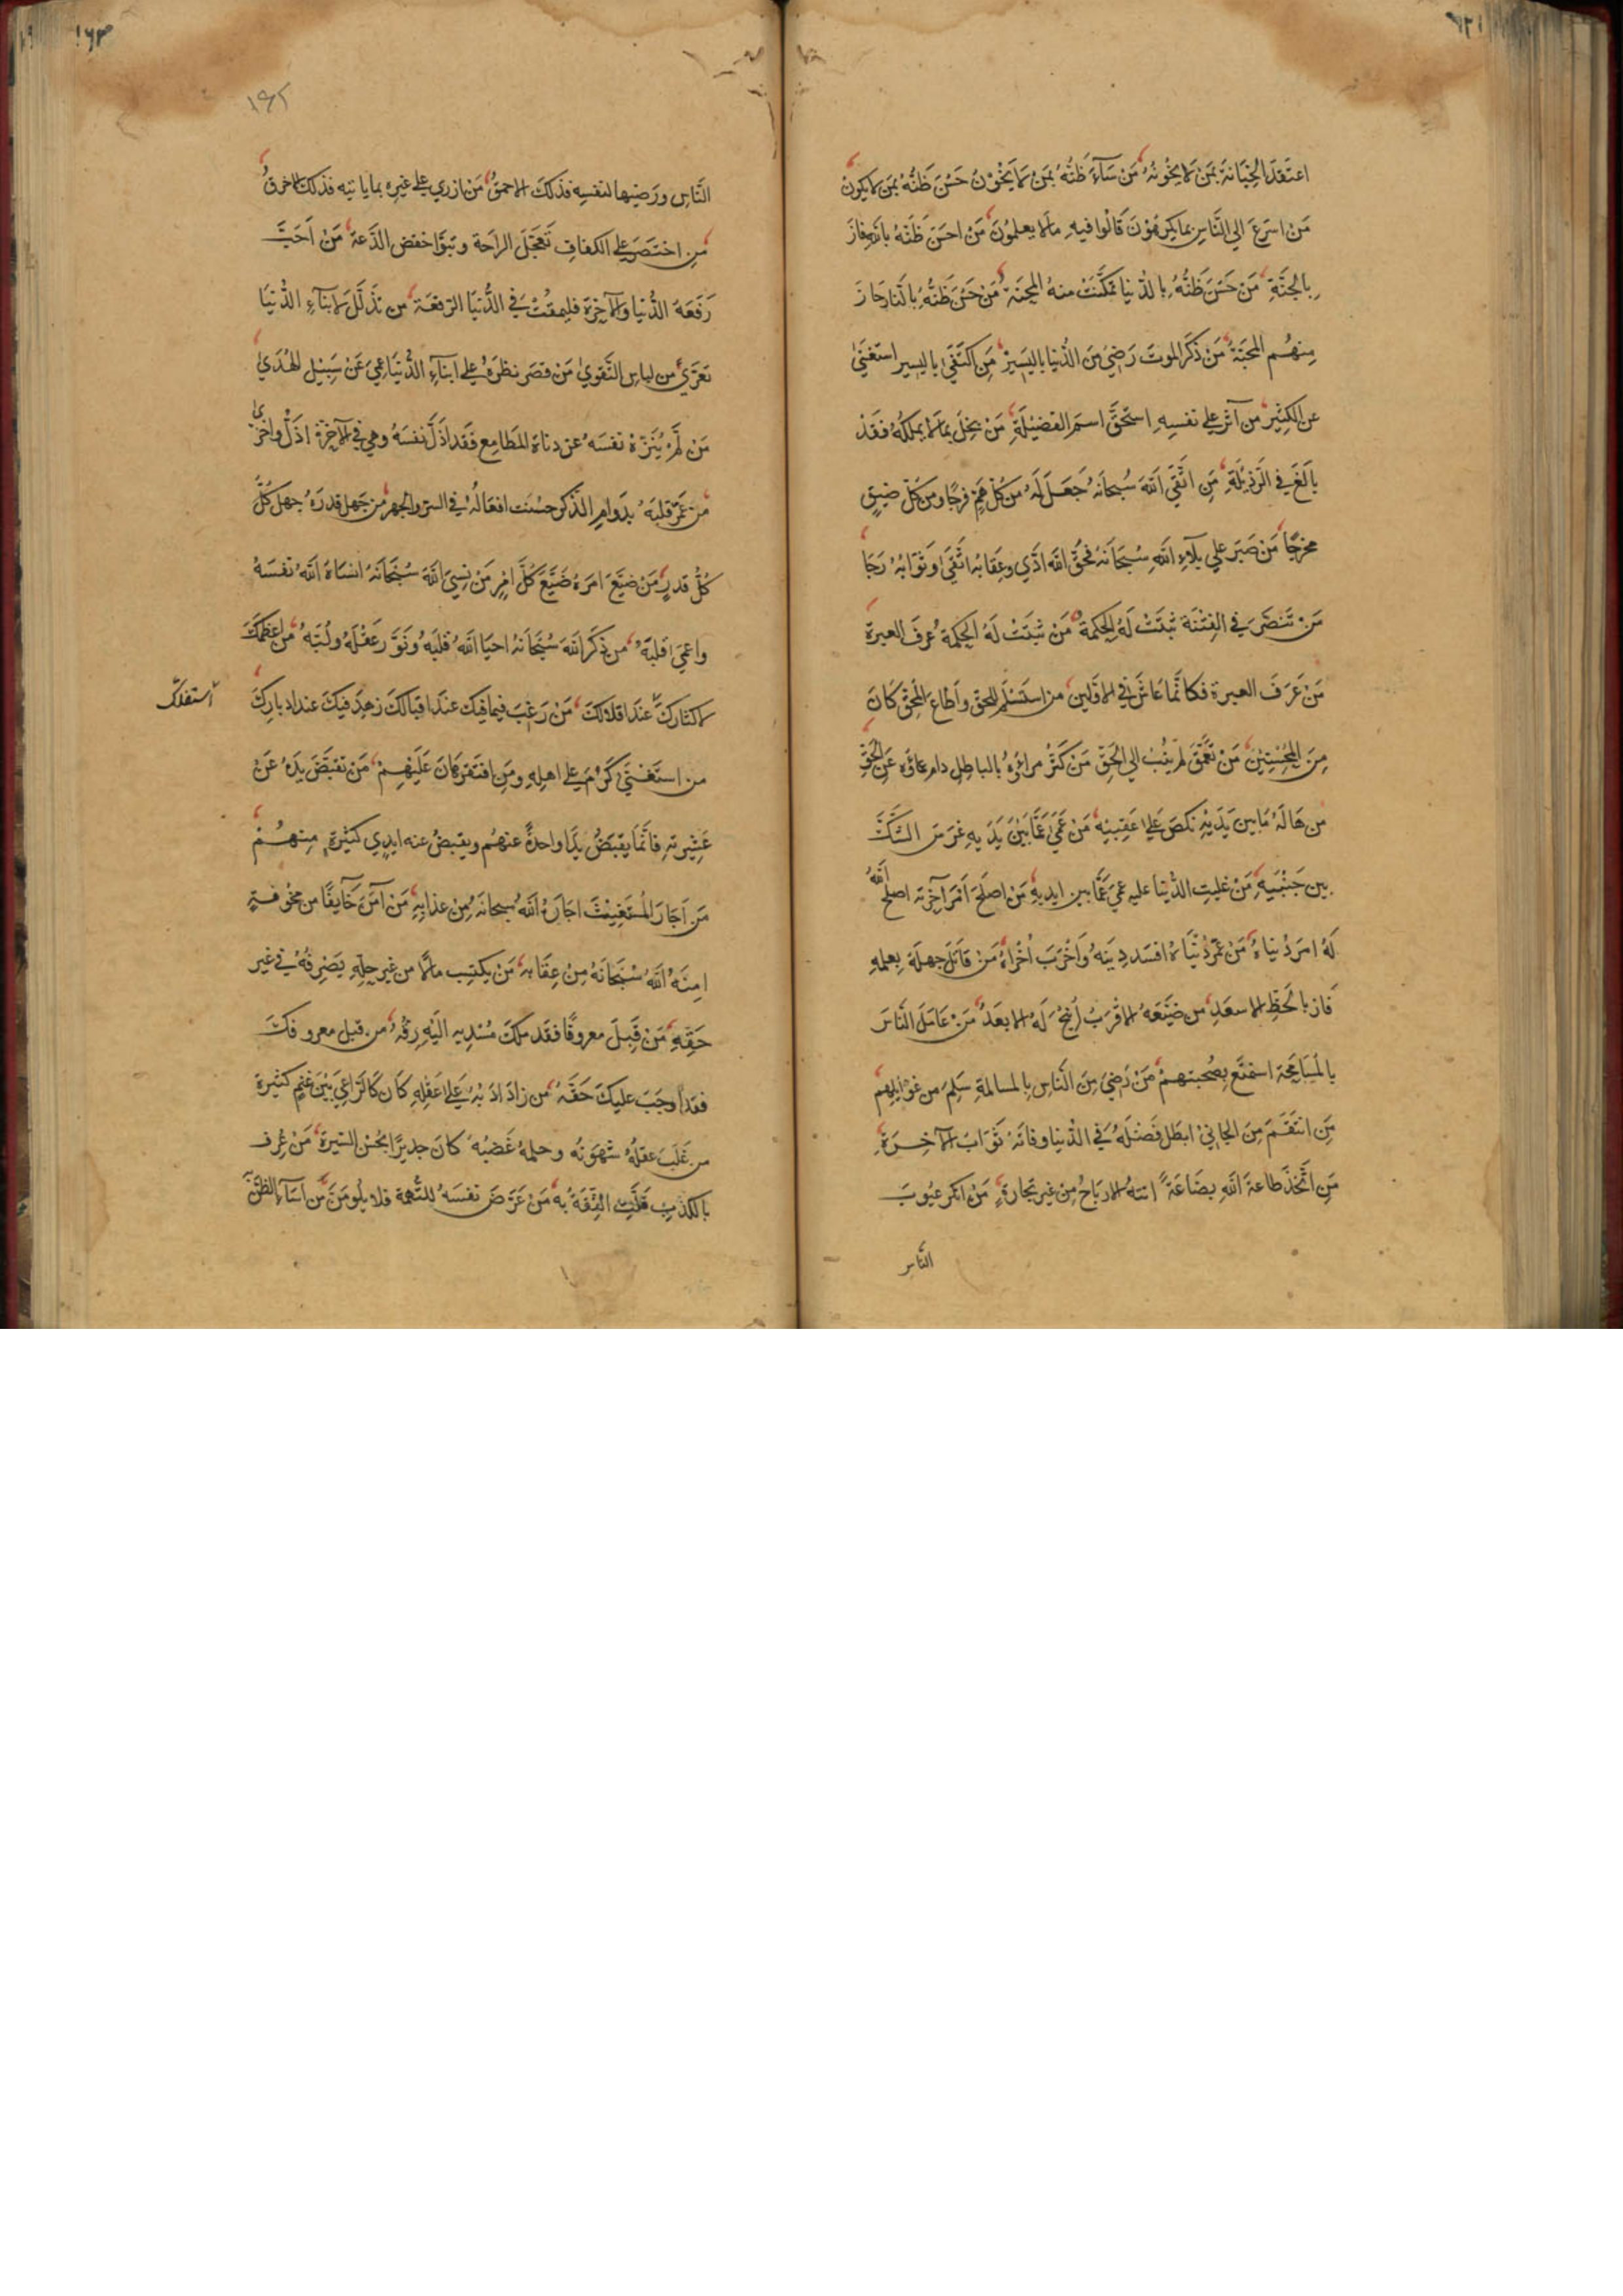 اعتَقَدَ الخِيَانةَ بمَنْ لَا يَخُونُهُ مَن سَآءَ ظَنُّهُ بمَنْ لَا يَخُونُ حَسُنَ ظَنُّهُ بمَن لا يكونُ
مَن اسرَعَ الي النَّاسِ بما يكرهُوْنَ قَالُوا فيهِ مالا يعلمُونَ مَن احسَنَ ظَنَّهُ بالله فازَ
بالجنَّةِ مَن حَسُنَ ظَنُّهُ بالدُّنيا تمكَّنَتْ منهُ المِحنَة مَنْ حَسُنَ ظَنُّهُ بالنَّاسِ حَازَ
مِنهُم المحبَّةَ مَن ذَكَر الموتَ رَضِيَ مِنَ الدُّنيا باليَسِيْرِ مَنِ اكتَفَيٰ باليسير استَغنَيٰ
عن الكثِيْر من آثر علي نفسِهِ استحَقَّ اسمَ الفَضيْلَةِ مَنْ بخِلَ بمالا يملكُهُ فقَدْ
بالَغَ في الرَّذيْلَةِ مَنِ اتَّقَي اللهَ سُبحانَهُ جَعَلَ لَهُ من كُلِّ هَمٍّ فرجًا ومن كُلِّ ضيقٍ
مخرجًا مَن صَبَرَ علي بلآءِ اللهِ سُبحَانَهُ فحَقَّ الله ادَّي وعِقابَهُ اتَّقَيٰ وثَوَابَهُ رَجَا
مَن تَبَصَّرَ في الفِتْنَة ثبتَتْ لَهُ الحِكمَةُ مَنْ ثَبتَتْ لَهُ الحِكمَة عُرفَ العبرة
مَن عَرَفَ العبرة فكانَّما عَاشَ في الاوَّلين من استَسْلَمَ للحقِ واَطاعَ المُحِقَّ كَانَ
مِنَ المُحسِنِيْن مَنْ تَعَمَّقَ لم يُنِبْ الي الحَقِّ مَنْ كَثُرَ مرآؤهُ بالباطِل دام عماؤه عَنِ الحَقِّ
مَن هَالَهُ مَا بين يَدَيْهِ نكصَ عَلي عَقِبيْهِ مَن عَمِيَ عَمَّا بَيْنَ يَدَيهِ غرَسَ الشَّكَّ
بين جَنْبَيهِ مَنْ غلبتِ الدُّنيا عليه عَمِيَ عَمَّا بين ايديهِ مَن اصلَحَ اَمْرَ آخِرتهِ اصلَحَ اللهُ
لَهُ امرَ دُنياهُ مَن عَمَّرَ دُنْيَاهُ افسَد دِينَهُ وَاَخْرَبَ اُخْراهُ مَن قَاتَلَ جهلَهُ بعلمِهِ
فَازَ بالحَظِّ الاسعَدِ مَن ضيَّعَهُ الاقرَبُ اُتيحُ لَهُ الابعَدُ مَن عَامَلَ النَّاسَ
بالمُسَامَحَة استمتَعَ بِصُحبتهِمْ مَن رَضِيَ مِنَ النَّاسِ بالمسالمةِ سَلِمَ من غوائلِهِم
مَنِ انتَقَمَ مِن الجاني ابطَلَ فَضْلَهُ في الدُّنيا وفاتَهُ ثَوَابُ الآخِرَة
مَنِ اتَّخَذَ طاعةَ اللهِ بِضَاعَةً اتتهُ الارباحُ مِن غير تجارةٍ مَن انكر عيُوبَ
النَّاس
١٦٢
النَّاسِ ورَضيَها لنفسِهِ فذلكَ الاحمقُ مَن ازري علي غيرِهِ بما ياتيه فذلكَ الاخرقُ
مَنِ اختَصَرَ علي الكفافِ تَعجَّلَ الراحة وتبوَّا خفض الدَّعة مَنْ اَحَبَّ
رَفَعَةَ الدُّنيا والآخِرَة فليمقُتْ في الدُّنيَا الرّفعَة من تذَلَّلَ لابناءِ الدُّنيَا
تعَرَّيٰ من لباسِ التَّقويٰ مَن قصَر نظرَهُ علي ابناءِ الدُّنيَا عَمِيَ عَنْ سَبِيْلِ الهُدَيٰ
مَن لَم يُنَزِّهْ نفسَهُ عن دناءة المَطامِع فَقَد اذَلَّ نفسَهُ وهي في الآخِرَة اذَلُّ واخْزيٰ
من عَمَّرَ قلبَهُ بدَوامِ الذّكرِ حسُنَت افعَالُهُ في السِّرِ والجهرِ من جَهِل قدرَهُ جهل كُلَّ
كُلَّ قدرٍ مَن ضيَّعَ امرَهُ ضَيَّعَ كلَّ امْرٍ مَنْ نَسِيَ اللهَ سُبْحَانَهُ انسَاهُ اللهُ نفسَهُ
واعمَيٰ قلبَهُ من ذكَر اللهَ سُبْحَانَهُ احيَا اللهُ قلبَهُ ونَوَّرَ عَقْلَهُ ولُبَّهُ من اعظمَكَ
لاكثارِكَ عندَ اقلالكَ مَنْ رَغِبَ فيما فيك عندَ اقبالكَ زهِدَ فيكَ عند ادبارِكَ
استقلَّك
من استَغْنيٰ كَرُمَ علي اهلِهِ ومَنِ افتَقَر هَانَ عَلَيْهِمْ مَن تقبَّضَ يدَهُ عَنْ
عَشِيْرتهِ فانَّمَا يقبَضُ يدًا واحدةً عنهُم ويقبضُ عنه ايدي كثيرة مِنهُمْ
مَن اَجَارَ المُستَغِيْثَ اجَارَهُ اللهُ سبحانَهُ مِن عذابِهِ مَن آمَنَ خَآيفًا من مَخُوفةٍ
امنَهُ اللهُ سُبْحَانَهُ مِنْ عِقَابهِ مَنْ يكتسِب مالًا من غير حِلِّهِ يَصْرِفهُ في غير
حَقِّهِ مَنْ قَبِلَ معروفًا فقَد ملكَ مُسْدِيهِ اليْهِ رِقَّهُ من قبل معروفكَ
فقدْ اَوجَبَ عليكَ حَقَّهُ من زادَ ادَبُهُ عَلي عَقلِهِ كَانَ كَالرَّاعِيْ بَيْنَ غنمٍ كثيرة
من غلَبَ عقلُهُ شهوَتَه وحلمهُ غَضبَهُ كانَ جديرًا بحُسنِ السّيرة مَنْ عُرف
بالكذبِ قلَّت الثِّقَةُ بهِ مَنْ عَرَّضَ نفسَهُ للتُّهمة فلا يلُومَنَّ مَن اسَآءَ الظنَّ